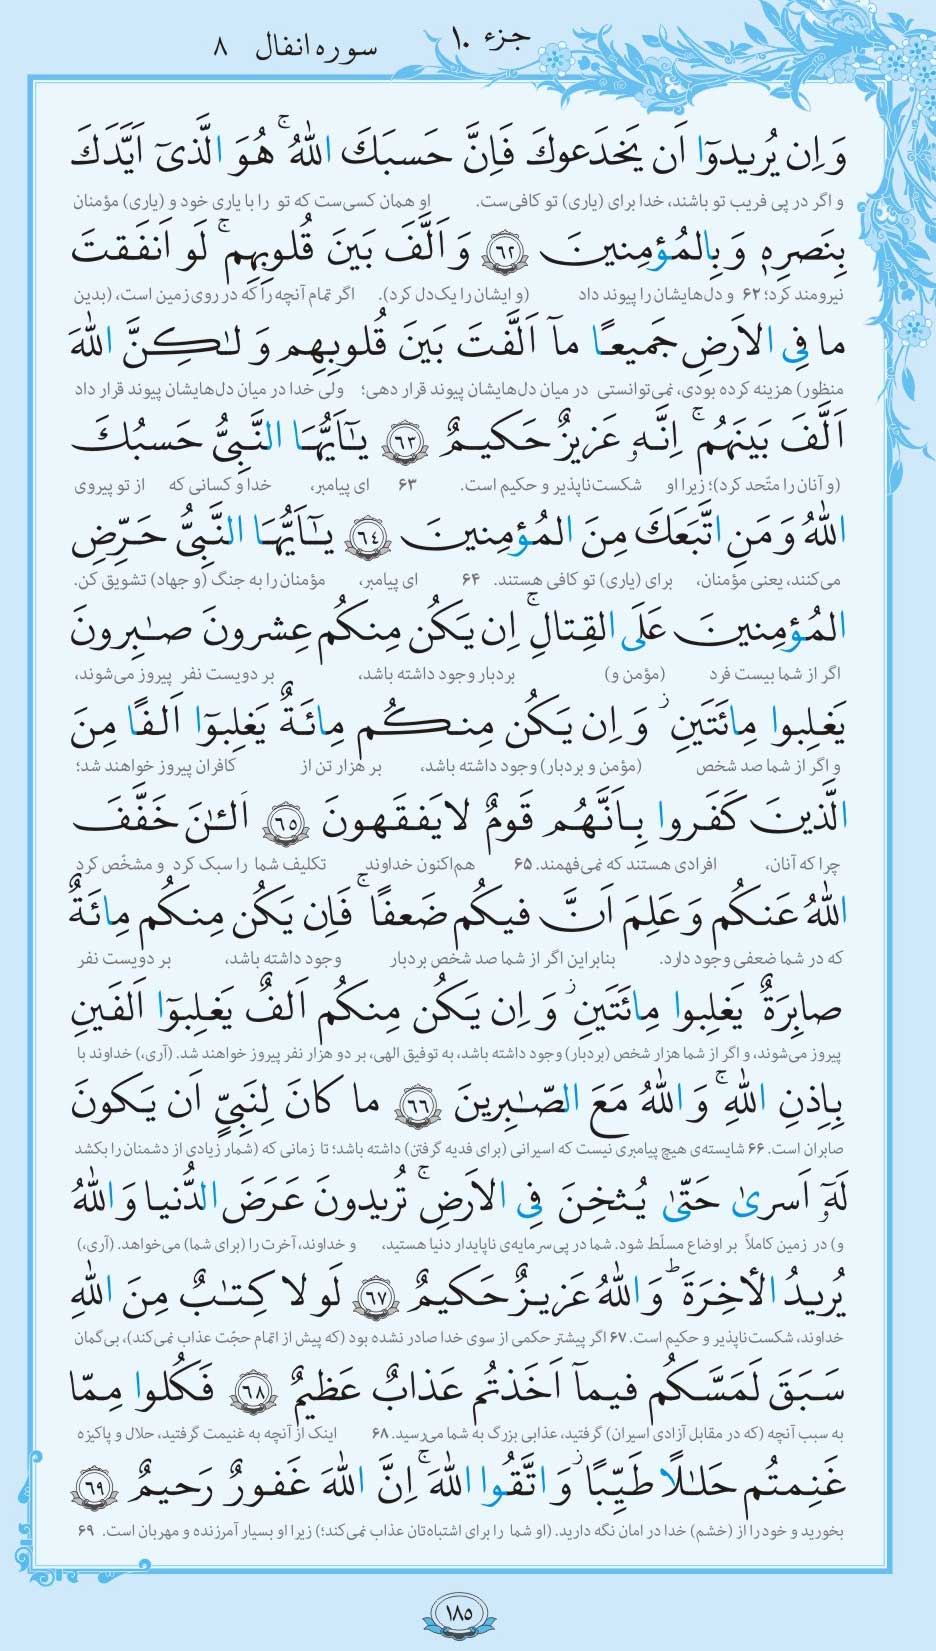 جزء ۱۰
سوره انفال ۸
وَ اِن يُريدوٓا اَن يَخدَعوكَ فَاِنَّ حَسبَكَ اللّٰهُ ۚ هُوَ الَّذىٓ اَيَّدَكَ
و اگر در پی فریب تو باشند، خدا برای (یاری) تو کافی‌ست. او همان کسی‌ست که تو را با یاری خود و (یاری) مؤمنان
بِنَصرِهٖ وَ بِالمُؤمِنينَ ﴿٦٢﴾ وَ اَلَّفَ بَينَ قُلوبِهِم ۚ لَو اَنفَقتَ
نیرومند کرد؛ ۶۲ و دل‌هایشان را پیوند داد (و ایشان را یک‌دل کرد). اگر تمام آنچه را که در روی زمین است، (بدین
ما فِى الاَرضِ جَميعًا مآ اَلَّفتَ بَينَ قُلوبِهِم وَ لٰكِنَّ اللّٰهَ
منظور) هزینه کرده بودی، نمی‌توانستی در میان دل‌هایشان پیوند قرار دهی؛ ولی خدا در میان دل‌هایشان پیوند قرار داد
اَلَّفَ بَينَهُم ۚ اِنَّهٗ عَزيزٌ حَكيمٌ ﴿٦٣﴾ يٰٓاَيُّهَا النَّبِىُّ حَسبُكَ
(و آنان را متّحد کرد)؛ زیرا او شکست‌ناپذیر و حکیم است. ۶۳ ای پیامبر، خدا و کسانی که از تو پیروی
اللّٰهُ وَ مَنِ اتَّبَعَكَ مِنَ المُؤمِنينَ ﴿٦٤﴾ يٰٓاَيُّهَا النَّبِىُّ حَرِّضِ
می‌کنند، یعنی مؤمنان، برای (یاری) تو کافی هستند. ۶۴ ای پیامبر، مؤمنان را به جنگ (و جهاد) تشویق کن.
المُؤمِنينَ عَلَى القِتالِ ۚ اِن يَكُن مِنكُم عِشرونَ صٰبِرونَ
اگر از شما بیست فرد (مؤمن و) بردبار وجود داشته باشد، بر دویست نفر پیروز می‌شوند،
يَغلِبوا مِائَتَينِ ۚ وَ اِن يَكُن مِنكُم مِائَةٌ يَغلِبوٓا اَلفًا مِنَ
و اگر از شما صد شخص (مؤمن و بردبار) وجود داشته باشد، بر هزار تن از کافران پیروز خواهند شد؛
الَّذينَ كَفَروا بِاَنَّهُم قَومٌ لا يَفقَهونَ ﴿٦٥﴾ اَلـٰٔنَ خَفَّفَ
چرا که آنان، افرادی هستند که نمی‌فهمند. ۶۵ هم‌اکنون خداوند تکلیف شما را سبک کرد و مشخّص کرد
اللّٰهُ عَنكُم وَ عَلِمَ اَنَّ فيكُم ضَعفًا ۚ فَاِن يَكُن مِنكُم مِائَةٌ
که در شما ضعفی وجود دارد. بنابراین اگر از شما صد شخص بردبار وجود داشته باشد، بر دویست نفر
صابِرَةٌ يَغلِبوا مِائَتَينِ ۚ وَ اِن يَكُن مِنكُم اَلفٌ يَغلِبوٓا اَلفَينِ
پیروز می‌شوند، و اگر از شما هزار شخص (بردبار) وجود داشته باشد، به توفیق الهی، بر دو هزار نفر پیروز خواهند شد. (آری،) خداوند با
بِاِذنِ اللّٰهِ ۚ وَ اللّٰهُ مَعَ الصّٰبِرينَ ﴿٦٦﴾ ما كانَ لِنَبِىٍّ اَن يَكونَ
صابران است. ۶۶ شایسته‌ی هیچ پیامبری نیست که اسیرانی (برای فدیه گرفتن) داشته باشد؛ تا زمانی که (شمار زیادی از دشمنان را بکشد
لَهٗٓ اَسرىٰ حَتّىٰ يُثخِنَ فِى الاَرضِ ۚ تُريدونَ عَرَضَ الدُّنيا وَ اللّٰهُ
و) در زمین کاملاً بر اوضاع مسلّط شود. شما در پی سرمایه‌ی ناپایدار دنیا هستید، و خداوند، آخرت را (برای شما) می‌خواهد. (آری،)
يُريدُ الأخِرَةَ ؕ وَ اللّٰهُ عَزيزٌ حَكيمٌ ﴿٦٧﴾ لَو لا كِتٰبٌ مِنَ اللّٰهِ
خداوند، شکست‌ناپذیر و حکیم است. ۶۷ اگر پیشتر حکمی از سوی خدا صادر نشده بود (که پیش از اتمام حجّت عذاب نمی‌کند)، بی‌گمان
سَبَقَ لَمَسَّكُم فيمآ اَخَذتُم عَذابٌ عَظيمٌ ﴿٦٨﴾ فَكُلوا مِمّا
به سبب آنچه (که در مقابل آزادی اسیران) گرفتید، عذابی بزرگ به شما می‌رسید. ۶۸ اینک از آنچه به غنیمت گرفتید، حلال و پاکیزه
غَنِمتُم حَلٰلًا طَيِّبًا ۚ وَ اتَّقُوا اللّٰهَ ۚ اِنَّ اللّٰهَ غَفورٌ رَحيمٌ ﴿٦٩﴾
بخورید و خود را از (خشم) خدا در امان نگه دارید. (او شما را برای اشتباه‌تان عذاب نمی‌کند؛) زیرا او بسیار آمرزنده و مهربان است. ۶۹
۱۸۵